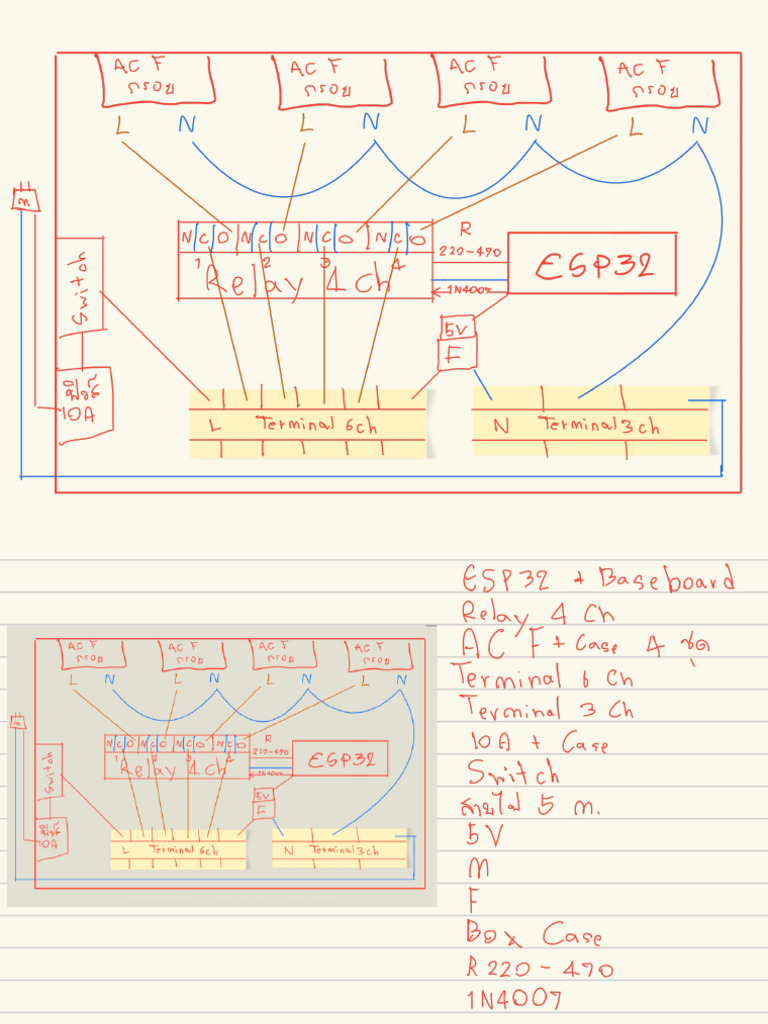 AC F AC F AC F AC F
กรอบ กรอบ กรอบ กรอบ
L N L N L N L N
m
N C O N C O N C O N C O
1 2 3 4
Relay 4 ch
R
220-470
1N4007
ESP32
Switch
5V
F
ฟิวส์
10A
L Terminal 6 ch
N Terminal 3 ch
ESP32 + Baseboard
Relay 4 Ch
AC F + Case 4 ชุด
Terminal 6 Ch
Terminal 3 Ch
10A + Case
Switch
สายไฟ 5 m.
5V
M
F
Box Case
R 220 - 470
1N4007
AC F AC F AC F AC F
กรอบ กรอบ กรอบ กรอบ
L N L N L N L N
m
N C O N C O N C O N C O
1 2 3 4
Relay 4 ch
R
220-470
1N4007
ESP32
Switch
5V
F
ฟิวส์
10A
L Terminal 6ch
N Terminal 3 ch